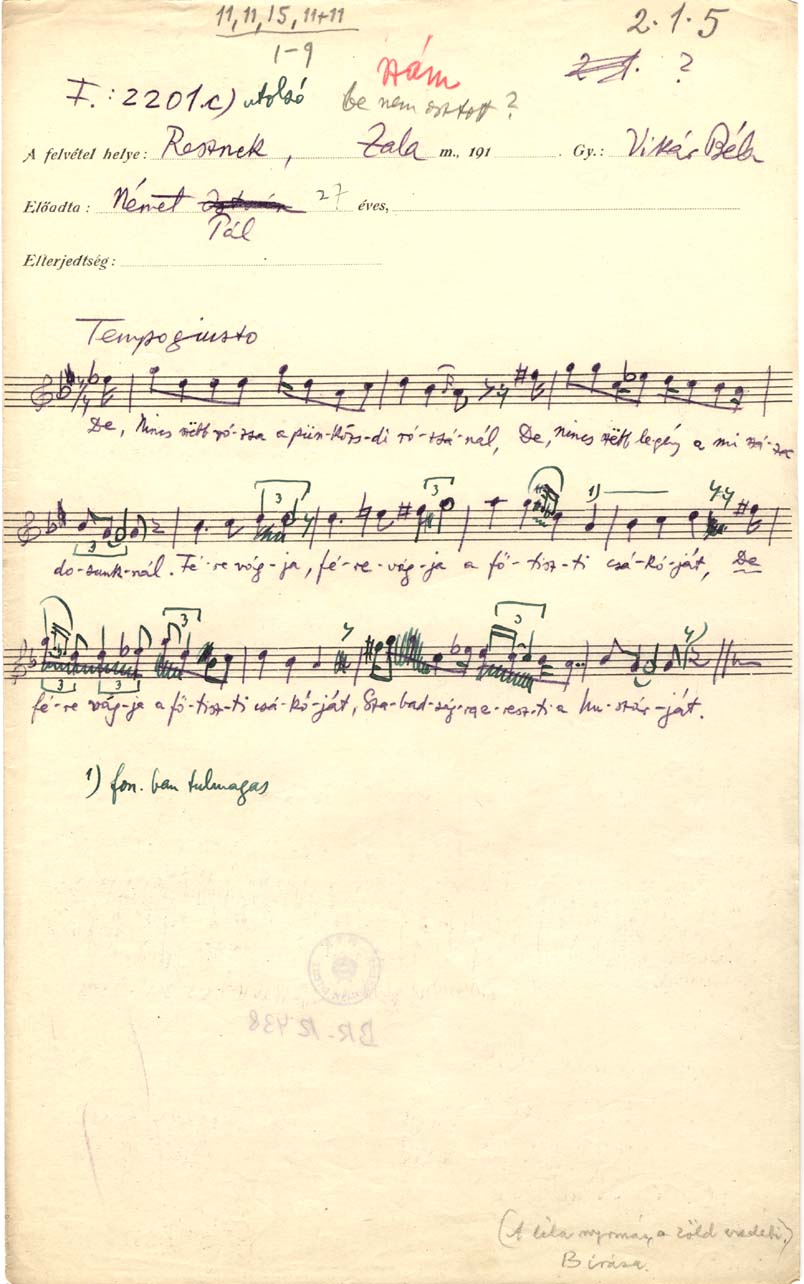 11, 11, 15, 11+11
1-9
2.1.5
szám
2.1. ?
F.: 2201.c) utolsó
be nem osztott?
A felvétel helye: Resznek, Zala m., 191 Gy.: Vikár Béla
Előadta: Német István 27 éves,
Pál
Elterjedtség:
Tempo giusto
De, Nincs szëbb ró-zsa a pün-közs-di ró-zsá-nál, De, nincs szëbb legény a mi szá-za
3 3 3 1)
do-sunk-nál. Fé-re vág-ja, fé-re-vág-ja a fő-tisz-ti csá-kó-ját, De
3 3 3 3
fé-re vág-ja a fő-tisz-ti csá-kó-ját, Sza-bad-ság-ra e-resz-ti a hu-szár-ját.
1) fon. ban tulmagas
BR-R 438
(A lila nyomás, a zöld eredeti.)
B. írása.